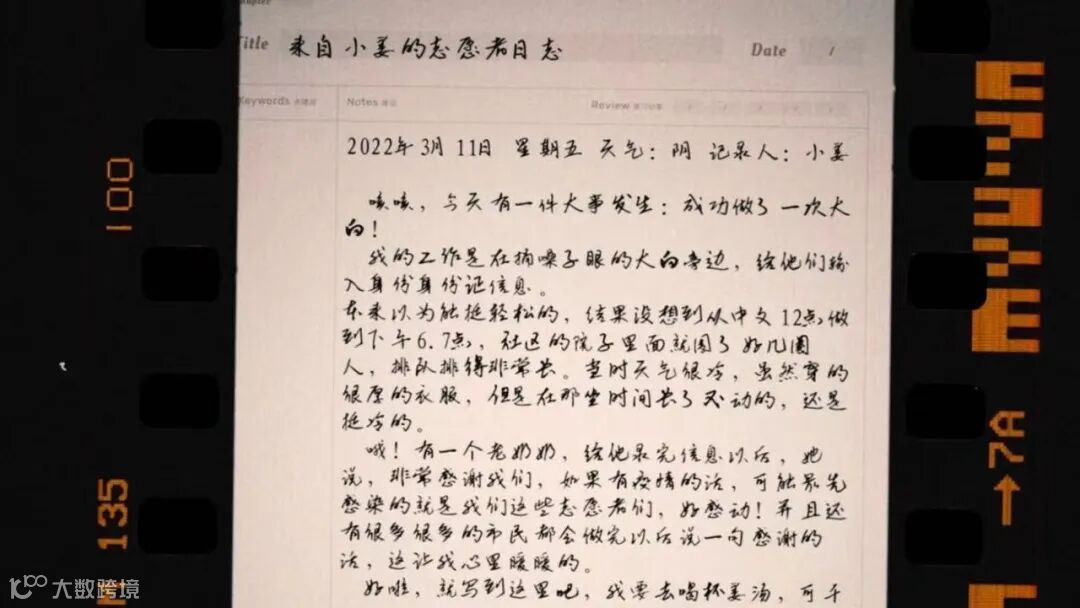 Title 来自小姜的志愿者日志 Date /
Keywords Notes Review
2022年3月11日 星期五 天气：阴 记录人：小姜
咳咳，今天有一件大事发生：成功做了一次大
白！
我的工作是在捅嗓子眼的大白旁边，给他们输
入身份身份证信息。
本来以为能挺轻松的，结果没想到从中文12点做
到下午6.7点，社区的院子里面就围了好几圈
人，排队排得非常长。当时天气很冷，虽然穿的
很厚的衣服，但是在那坐时间长了不动的，还是
挺冷的。
哦！有一个老奶奶，给他录完信息以后，她
说，非常感谢我们，如果有疫情的话，可能最先
感染的就是我们这些志愿者们，好感动！并且还
有很多很多的市民都会做完以后说一句感谢的
话，这让我心里暖暖的。
好啦，就写到这里吧，我要去喝杯姜汤，可千
100
135
7A
大数跨境